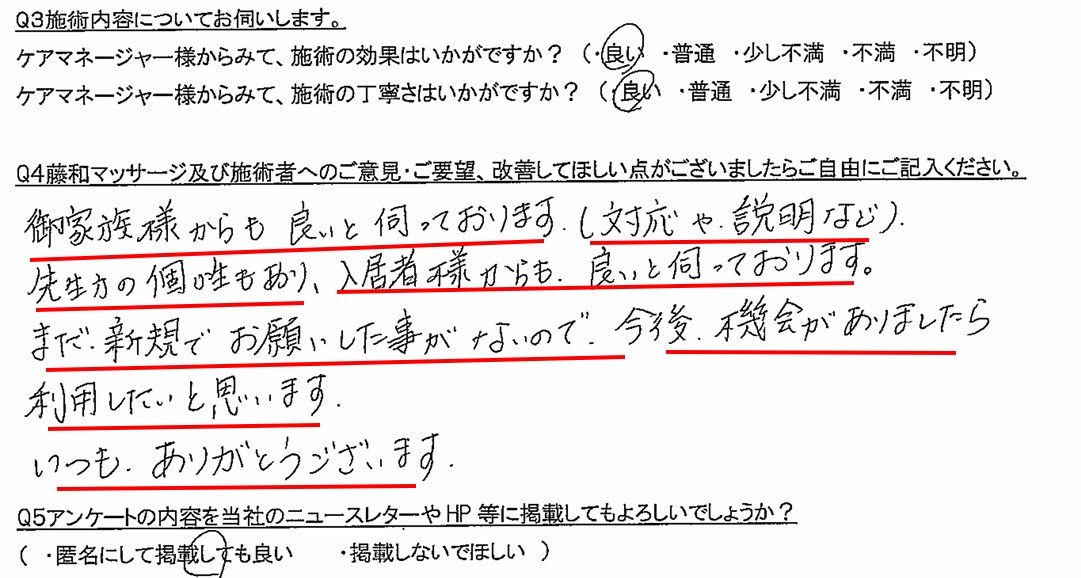 Q3施術内容についてお伺いします。
ケアマネージャー様からみて、施術の効果はいかがですか？（・良い ・普通 ・少し不満 ・不満 ・不明）
ケアマネージャー様からみて、施術の丁寧さはいかがですか？（・良い ・普通 ・少し不満 ・不満 ・不明）
Q4藤和マッサージ及び施術者へのご意見・ご要望、改善してほしい点がございましたらご自由にご記入ください。
御家族様からも 良いと伺っております.（対応や.説明など）.
先生方の個性もあり、入居者様からも. 良いと伺っております。
まだ.新規で お願いした事がないので. 今後.機会がありましたら
利用したいと思います.
いつも.ありがとうございます.
Q5アンケートの内容を当社のニュースレターやHP等に掲載してもよろしいでしょうか？
（ ・匿名にして掲載しても良い ・掲載しないでほしい ）